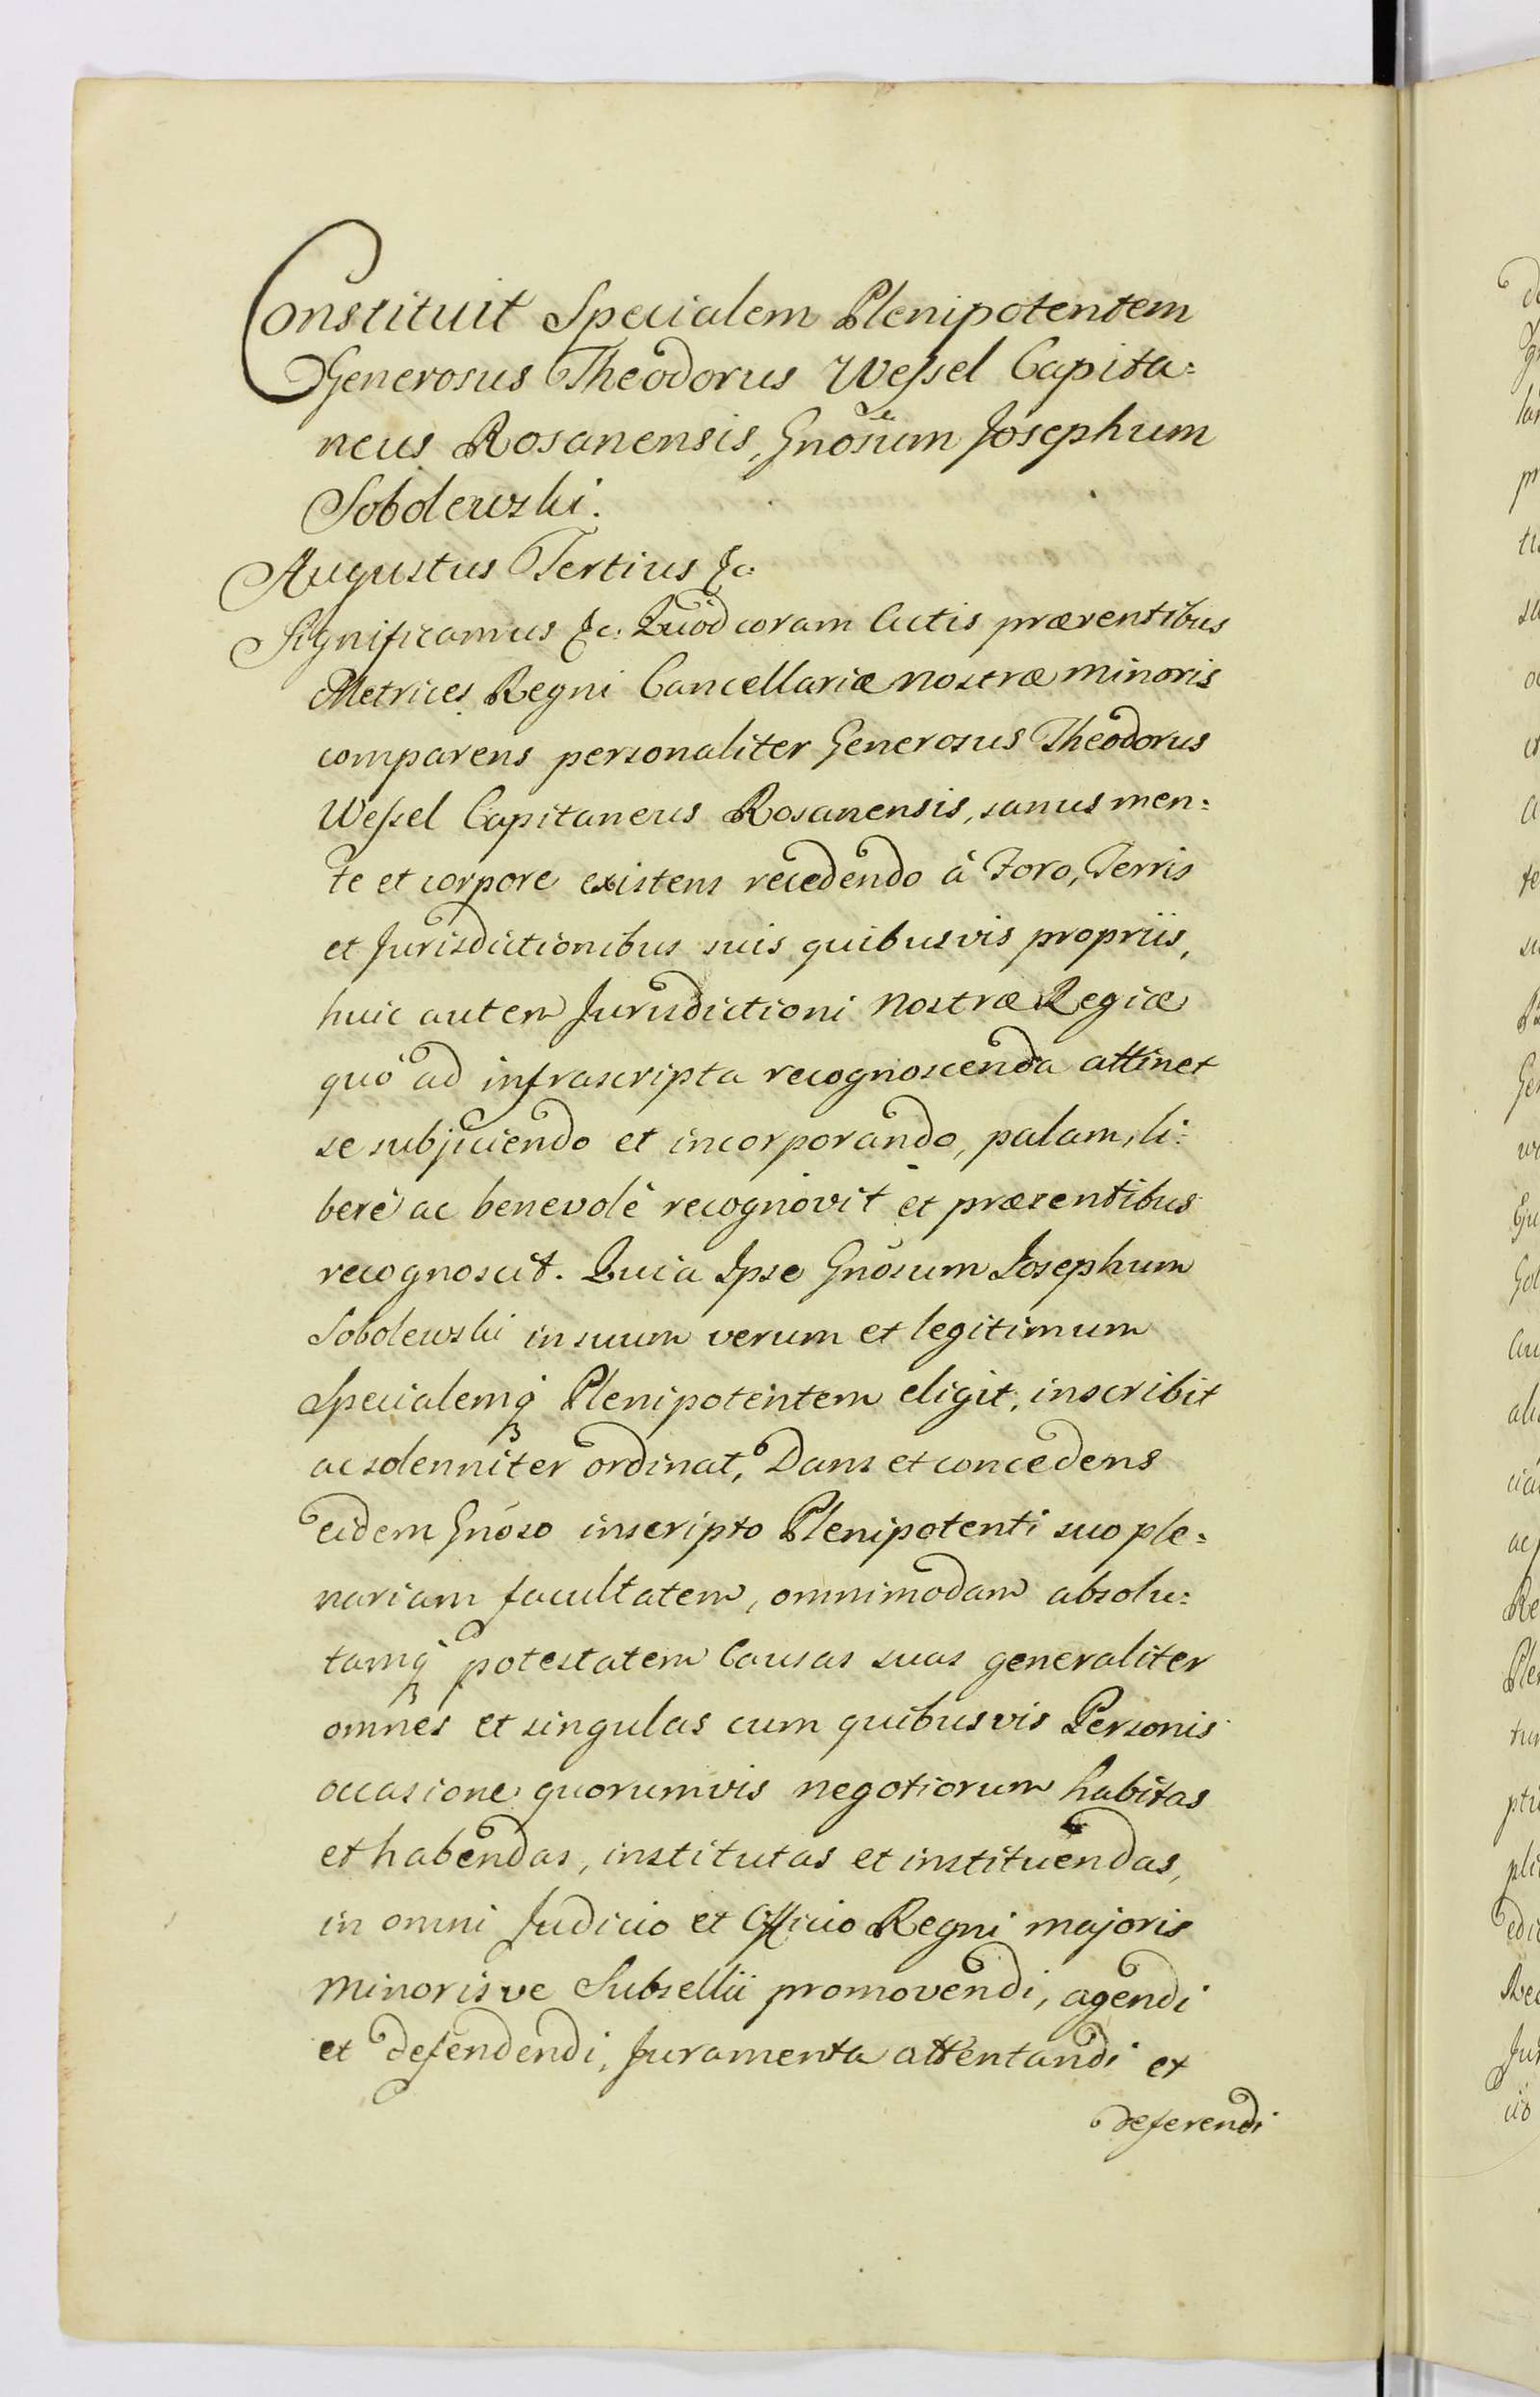 Constituit Specialem Plenipotentem
Generosus Theodorus Wessel Capita=
neus Rosanensis, Gnosum Josephum
Sobolewski.
Augustus Tertius &c:
Significamus &c: Quòd coram Actis præsentibus
Metrices Regni Cancellariæ Nostræ Minoris
comparens personaliter Generosus Theodorus
Wessel Capitaneus Rosanensis, sanus men=
te et corpore existens recedendo à Foro, Terris
et Jurisdictionibus suis quibusvis propriis,
huic autem Jurisdictioni Nostræ Regiæ
quò ad infrascripta recognoscenda attinet
se subjiciendo et incorporando, palam, li=
berè ac benevolè recognovit et præsentibus
recognoscit. Quia Ipse Gnosum Josephum
Sobolewski in suum verum et legitimum
Specialemq̃ Plenipotentem eligit, inscribit
ac solenniter ordinat, Dans et concedens
eidem Gnoso inscripto Plenipotenti suo ple=
nariam facultatem, omnimodam absolu=
tamq̃ potestatem Causas suas generaliter
omnes et singulas cum quibusvis Personis
occasione quorumvis negotiorum habitas
et habendas, institutas et instituendas,
in omni Judicio et Officio Regni majoris
minorisve Subsellii promovendi, agendi
et defendendi, Juramenta attentandi et
deferendi